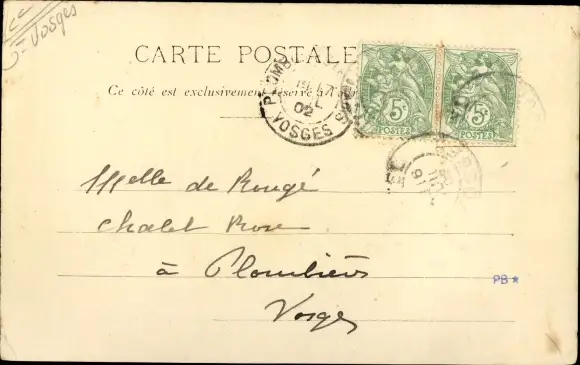 Vosges
CARTE POSTALE
Ce côté est exclusivement réservé à l'
PLOMB
02
VOSGES
5c
POSTES
5c
POSTES
Melle de Rougé
Chalet Rose
à Plombières
Vosges
PB